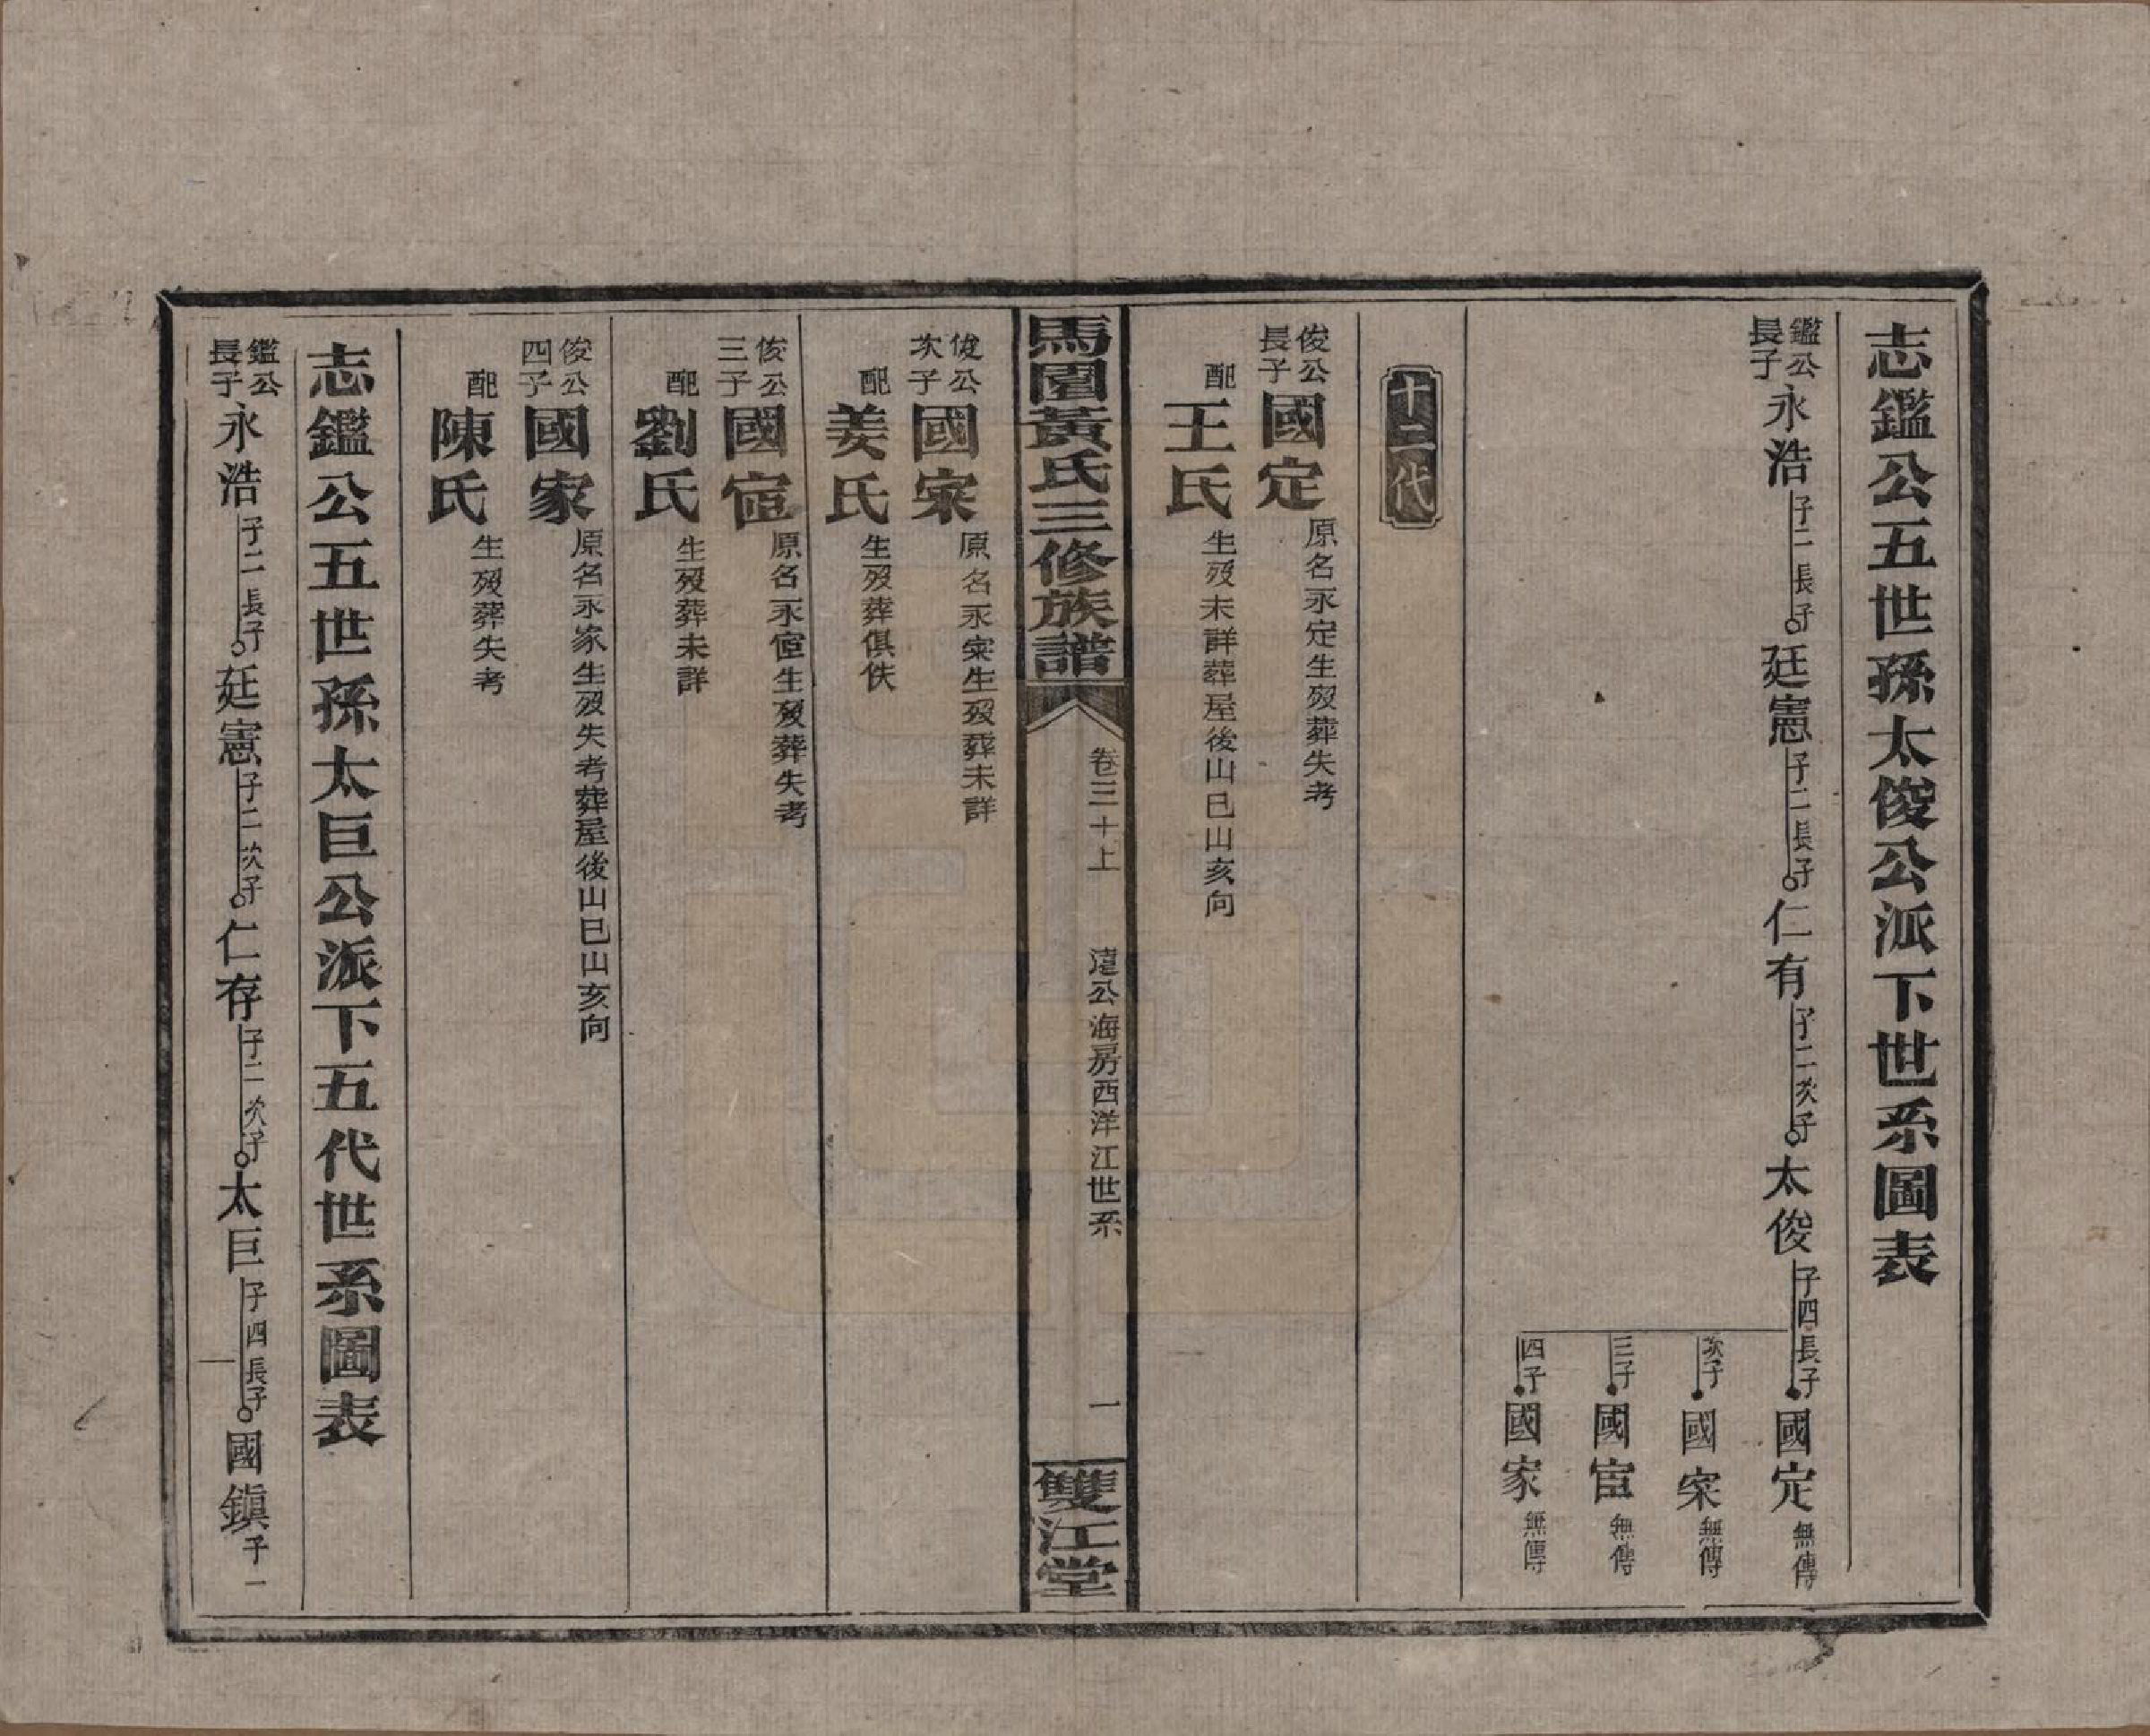 志鑑公五世孫太俊公派下世系圖表
鑑公長子永浩子二長子廷憲子二長子仁有子二次子太俊子四長子國定無傳
次子國寀無傳
三子國宦無傳
四子國家無傳
十二代
俊公長子國定原名永定生歿葬失考
配王氏生歿未詳葬屋後山巳山亥向
馬園黃氏三修族譜 卷三十上 遠公海房西洋江世系 一 雙江堂
俊公次子國寀原名永寀生歿葬未詳
配姜氏生歿葬俱佚
俊公三子國宦原名永宦生歿葬失考
配劉氏生歿葬未詳
俊公四子國家原名永家生歿失考葬屋後山巳山亥向
配陳氏生歿葬失考
志鑑公五世孫太巨公派下五代世系圖表
鑑公長子永浩子二長子廷憲子二次子仁存子二次子太巨子四長子國鎮子一